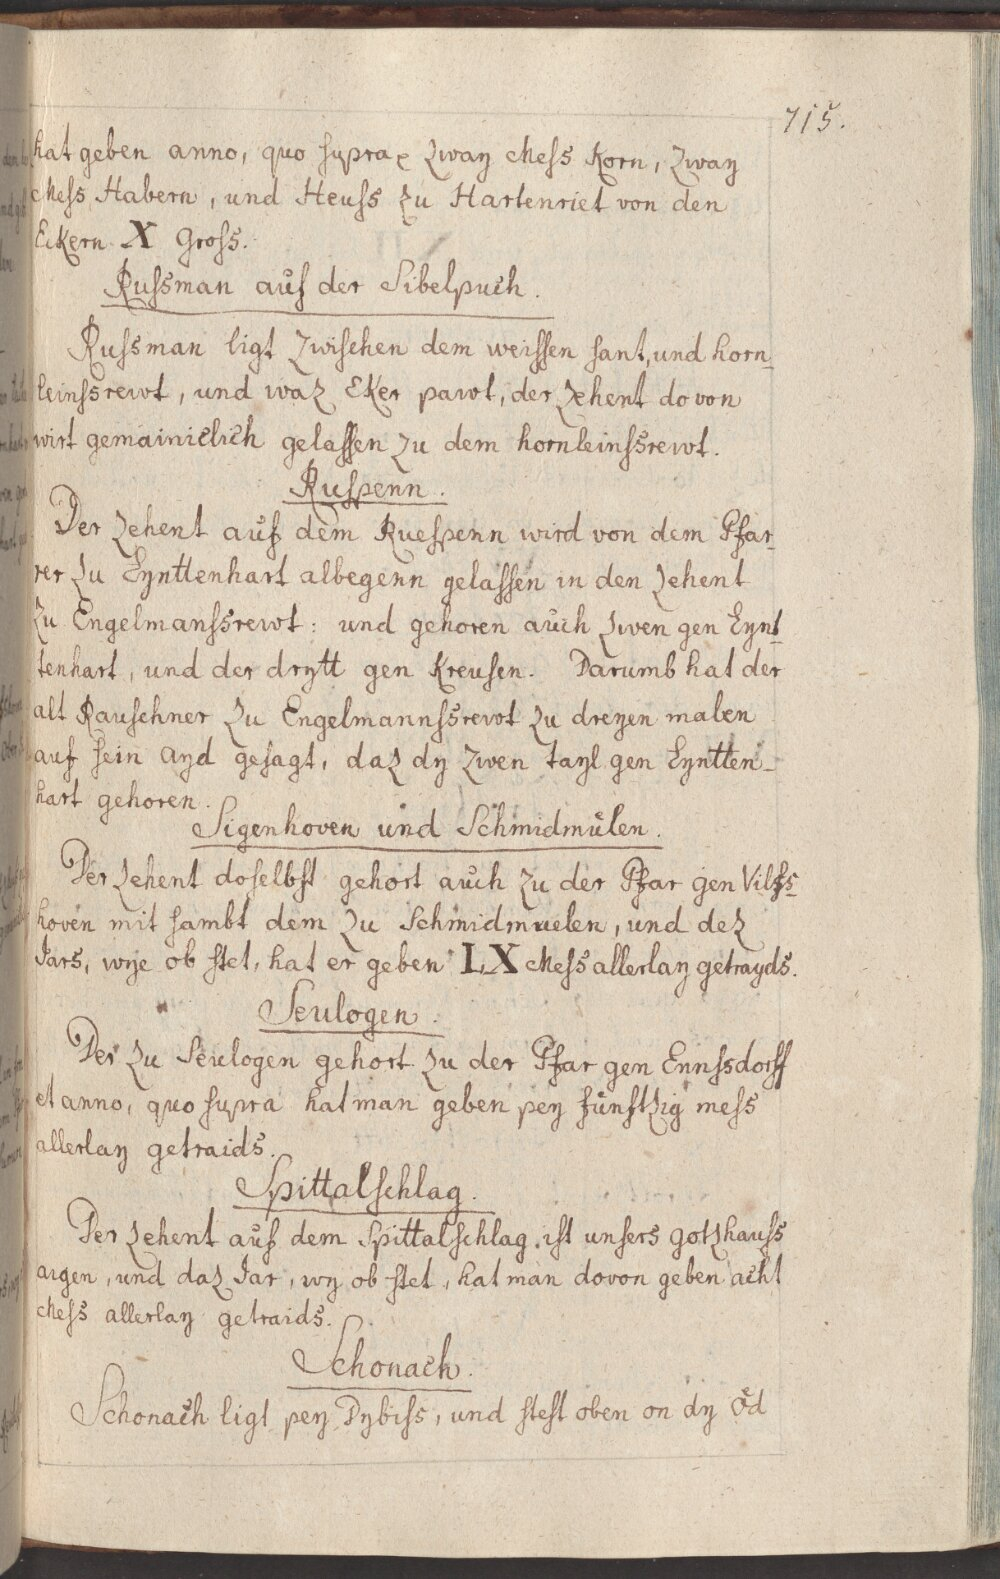 715.
hat geben anno, quo supra zway Mess Korn, zway
Mess Habern, und Heuss zu Hartenriet von den
Eckern X Gross.
Russman auf der Sibelpuch.
Russman ligt zwischen dem weissen sant, und horn-
leinssrewt, und waz Eker pawt, der zehent dovon
wirt gemainiclich gelassen zu dem hornleinssrewt.
Ruspenn.
Der zehent auf dem Ruespenn wird von dem Pfar-
rer zu Eynttenhart albegenn gelassen in den zehent
zu Engelmanssrewt: und gehoren auch zwen gen Eynt-
tenhart, und der drytt gen Kreusen. Darumb hat der
alt Rauschner zu Engelmannssrewt zu dreyen malen
auf sein ayd gesagt, daz dy zwen tayl gen Eyntten-
hart gehoren.
Sigenhoven und Schmidmülen.
Der zehent doselbst gehort auch zu der Pfar gen Vilss-
hoven mit sambt dem zu Schmidmuelen, und dez
Jars, wye ob stet, hat er geben LX Mess allerlay getrayds.
Seulogen.
Der zu Seulogen gehort zu der Pfar gen Ennssdorff
et anno, quo supra hat man geben pey funftzig mess
allerlay getraids.
Spittalschlag.
Der zehent auf dem Spittalschlag ist unsers gotzhauss
aigen, und daz Jar, wy ob stet, hat man dovon geben acht
Mess allerlay getraids.
Schonach.
Schonach ligt pey Dybiss, und stest oben on dy Öd